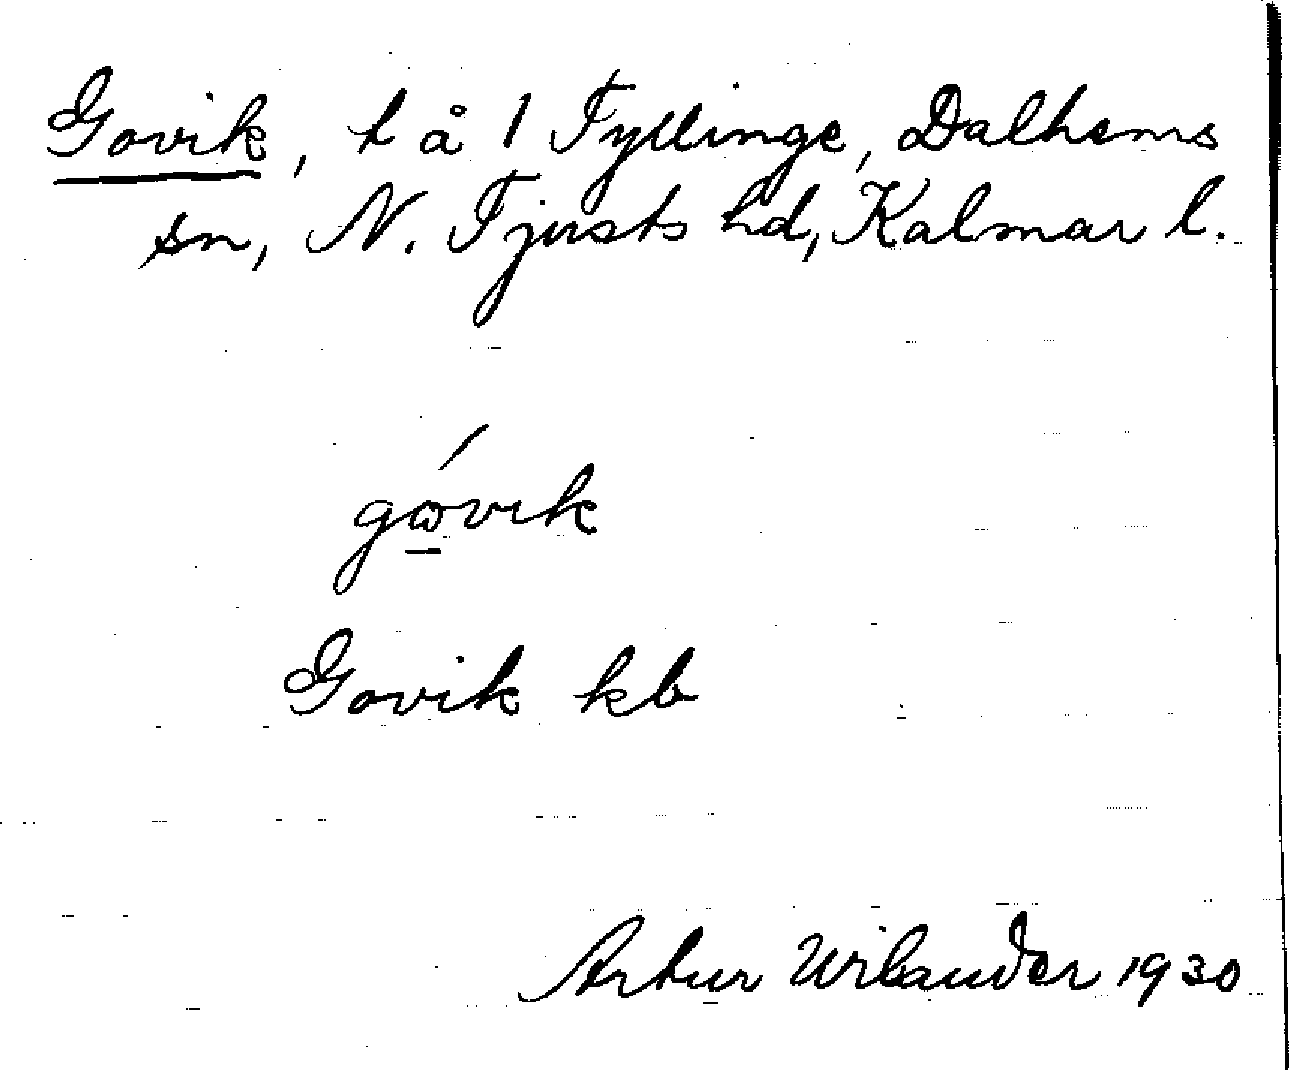 Govik, t å 1 Tyllinge, Dalhems
sn, N. Tjusts hd, Kalmar l.
gώ̱vik
Govik kb
Artur Wilander 1930